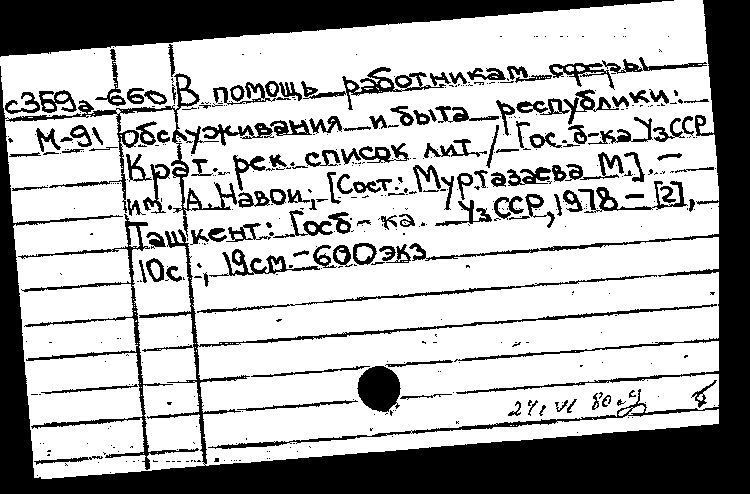 с3Б9а-660 В помощь работникам сферы
М-91 обслуживания и быта республики:
Крат. рек. список лит. / Гос. б-ка УзССР
им. А. Навои; [Сост.: Муртазаева М.]. —
Ташкент: Госб-ка УзССР, 1978. — [2],
10с.; 19см. — 600экз
24/VI 80